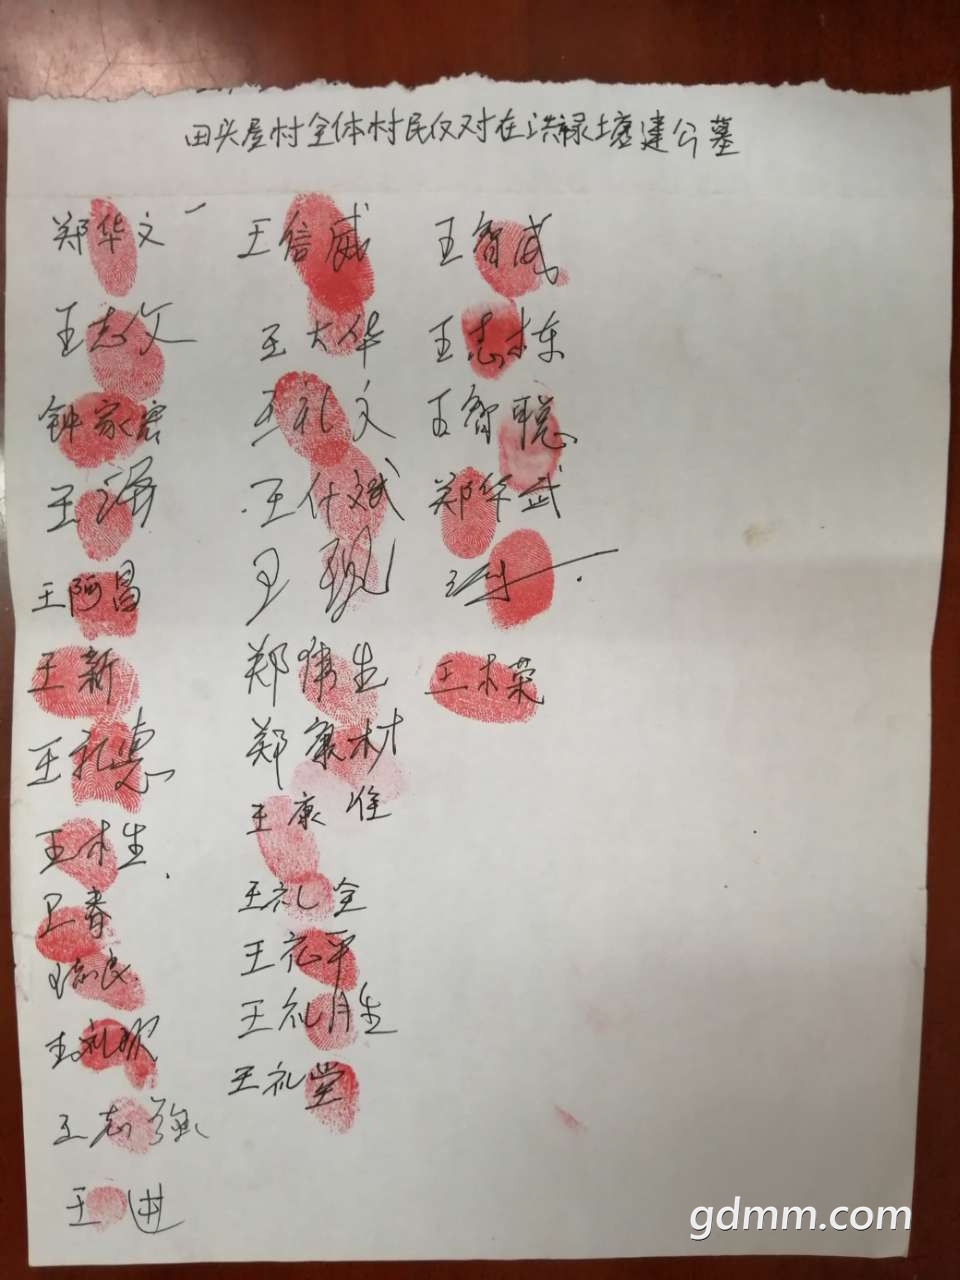 田头屋村全体村民反对在洪禄塘建公墓
郑华文
王志文
钟家宏
王泽
王阿昌
王新
王礼惠
王木生
王春
王志民
王礼欢
王志强
王进
王信威
王大华
王礼文
王仕斌
王
郑伟生
郑康材
王康佳
王礼全
王花平
王礼胜
王礼堂
王智威
王志栋
王智聪
郑华武
王木荣
gdmm.com